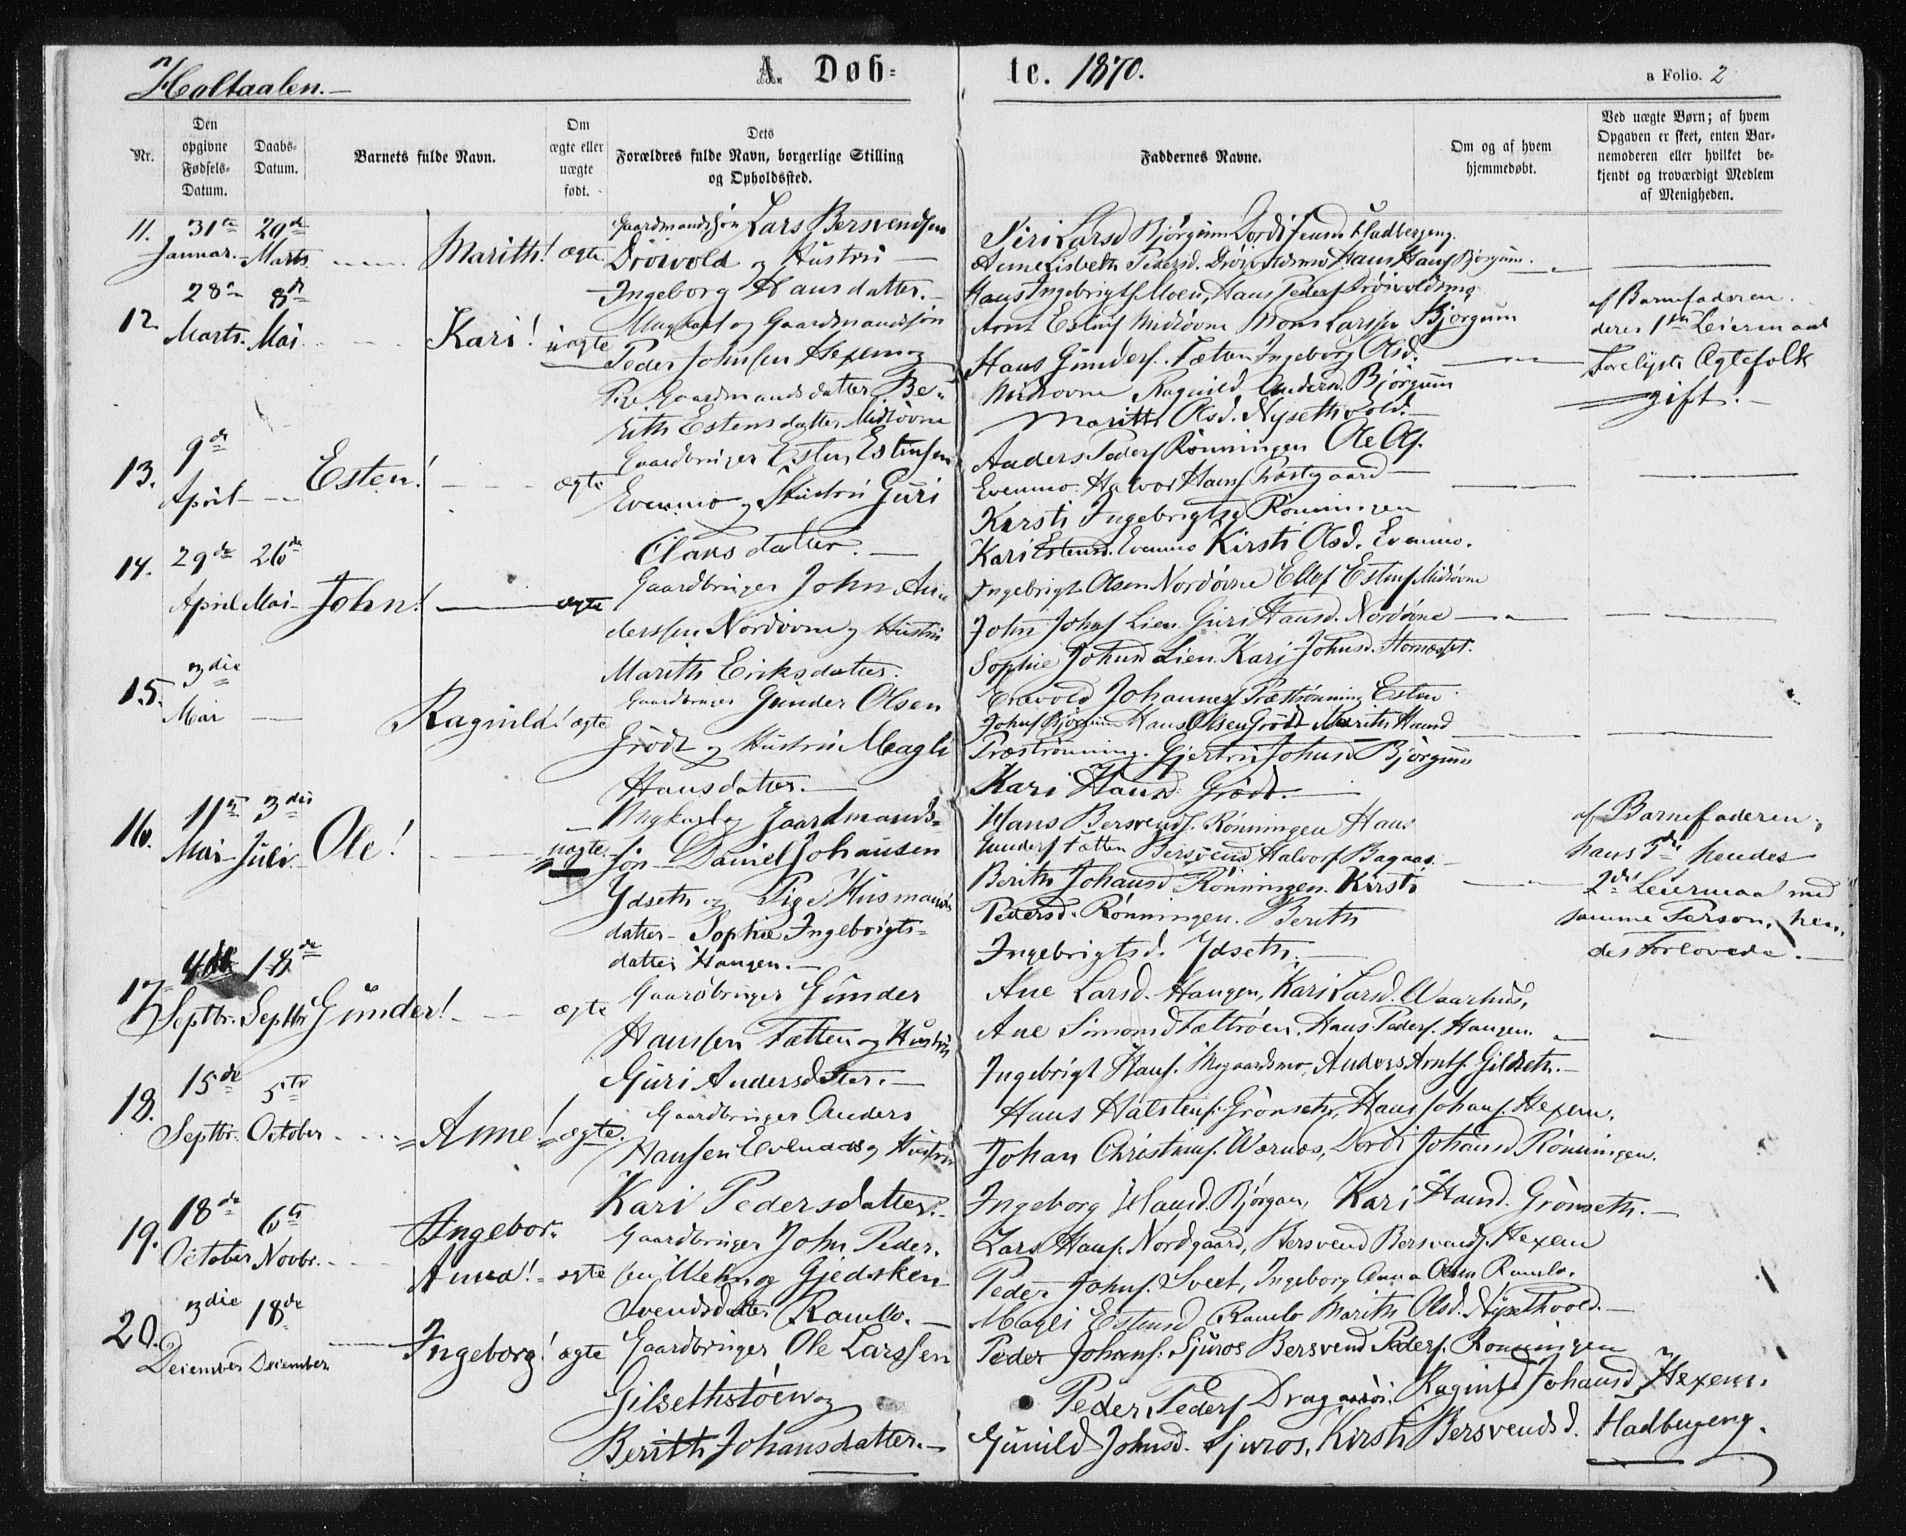 Holtaalen.
A. Døb-
te. 1870.
a Folio. 2
Nr.
Den opgivne Fødsels-Datum.
Daabs-Datum.
Barnets fulde Navn.
Om ægte eller uægte født.
Dets Forældres fulde Navn, borgerlige Stilling og Opholdssted.
Faddernes Navne.
Om og af hvem hjemmedøbt.
Ved uægte Børn; af hvem Opgaven er skeet, enten Barnemoderen eller hvilket bekjendt og troværdigt Medlem af Menigheden.
11. 31te Januar. 29de Marts Marith! ægte
Gaardmandssøn Lars Bersvendsen
Dröivold og Hustru
Ingeborg Hansdatter.
Siri Larsd Bjørgum Dordi Hadbergeng.
Anne Lisbeth Pedersd. Hans Hans Bjørgum.
Hans Ingebrigts Moen, Hans Peders
12. 28e Marts. 8de Mai Kari! uægte
Ungkarl og Gaardmandssøn
Peder Johnsen Hexem og
Pige Gaardmandsdatter Be-
rith Estensdatter Midtövne
Arnt Estens Midtövne Mons Larssen Bjørgum
Hans Gunders. Tætten Ingeborg Olsd.
Midtovne Ragnild Andersd. Bjørgum
Marith Olsd. Nysethvold.
af Barnefaderen.
deres 1ste Leiermaal
Ægtefolk
gift.
13. 9de April Esten! ægte
Gaardbruger Esten Estensen
Evenmo og Hustru Guri
Olausdatter.
Anders Peders Rönningen Ole Ols.
Evenmo. Halvor Hans
Kirsti Ingebrigtsd Rönningen
Kari Estensd. Evenmo Kirsti Olsd. Evenmo.
14. 29de April 26de Mai John! ægte
Gaardbruger John An-
derssen Nordövne og Hustru
Marith Eriksdatter.
Ingebrigt Olsen Nordövne Ellef Estens Midtövne
John Johns Lien. Guri Hansd. Nordövne
Sophie Johnsd Lien. Kari Johnsd.
15. 3die Mai Ragnild! ægte
Gaardbruger Gunder Olsen
Grödt og Hustru Magli
Hansdatter.
Johannes Esten
Johns Bjørgum Hans Olsen Grödt Marith Hansd
Præströnning. Gjertru Johnsd Bjørgum
Kari Hansd. Grödt.
16. 11te Mai 3die Juli Ole! uægte
Ungkarl og Gaardmands-
søn Daniel Johansen
Ydseth og Pige Husmands
datter Sophie Ingebrigts-
datter Haugen.
Hans Bersvends. Rönningen Hans
Gunders Tætten Bersvend Halvors Bagaas.
Berith Johansd Rönningen. Kirsti
Pedersd. Rönningen. Berith
Ingebrigtsd. Ydseth.
af Barnefaderen,
hans 3de hendes
2det Leiermaal med
samme Person, hen-
des Forlovede.
17. 4de Septbr. 18de Septbr Gunder! ægte
Gaardbruger Gunder
Hanssen Tætten og Hustru
Guri Andersdatter.
Ane Larsd. Haugen, Kari Larsd. Waarhus,
Ane Simonsd Hans Peders. Haugen.
Ingebrigt Hans. Mogaardsmo, Anders Arnts. Gilseth.
18. 15de Septbr. 5te October Anne! ægte.
Gaardbruger Anders
Hansen Evenaas og Hustru
Kari Pedersdatter.
Hans Halstens. Grönseth, Hans Johans. Hexem.
Johan Christians. Wærnæs, Dordi Johansd Rönningen.
Ingeborg Hansd. Bjørgaas, Kari Hansd. Grönseth.
19. 18de October 6te Novbr. Ingebor. Anna! ægte
Gaardbruger John Peder-
sen og Gjedsken
Svendsdatter Ramlo.
Lars Hans. Nordgaard, Bersvend Bersvends. Hexem
Peder Johns. Ingeborg Anna Olsen Ramlo.
Magli Estensd Ramlo Marith Olsd. Nysethvold.
20. 3die December 18de December Ingeborg! ægte
Gaardbruger Ole Larssen
Gilsethstöen og
Berith Johansdatter.
Peder Johans. Sjuros Bersvend Peders. Rönningen
Peder Peders Dragaas. Ragnild Johansd, Hexem.
Gunild Johnsd. Sjuros, Kirsti Bersvendsd. Hadbergeng.